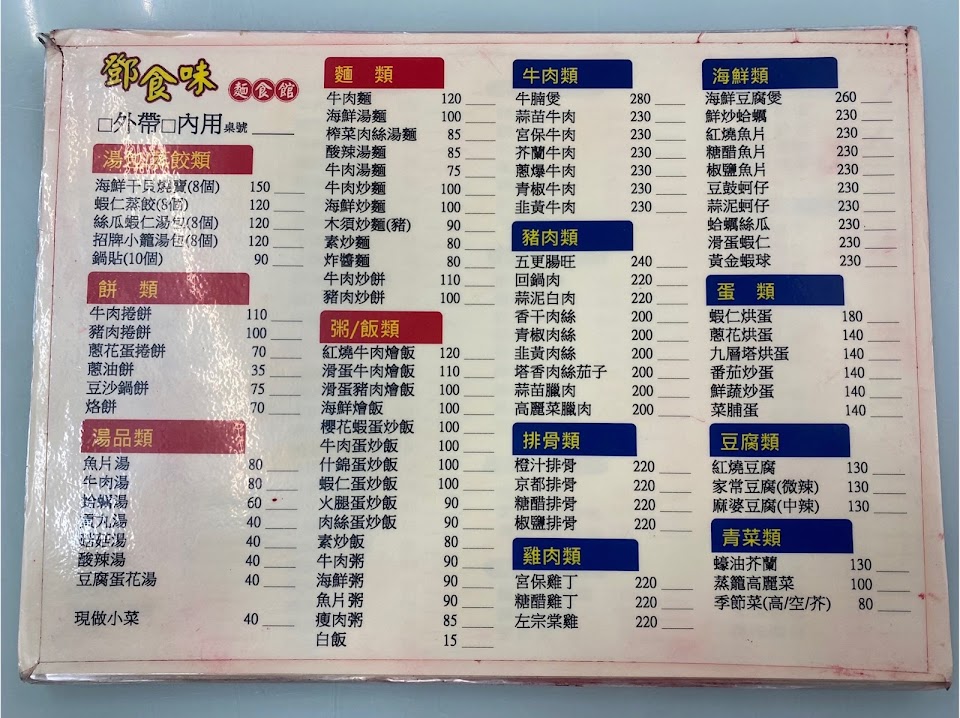 鄧食味 麵食館
□外帶□內用桌號
湯包蒸餃類
海鮮干貝燒賣(8個) 150
蝦仁蒸餃(8個) 120
絲瓜蝦仁湯包(8個) 120
招牌小籠湯包(8個) 120
鍋貼(10個) 90
餅 類
牛肉捲餅 110
豬肉捲餅 100
蔥花蛋捲餅 70
蔥油餅 35
豆沙鍋餅 75
烙餅 70
湯品類
魚片湯 80
牛肉湯 80
蛤蠣湯 60
貢丸湯 40
菇菇湯 40
酸辣湯 40
豆腐蛋花湯 40
現做小菜 40
麵 類
牛肉麵 120
海鮮湯麵 100
榨菜肉絲湯麵 85
酸辣湯麵 85
牛肉湯麵 75
牛肉炒麵 100
海鮮炒麵 100
木須炒麵(豬) 90
素炒麵 80
炸醬麵 80
牛肉炒餅 110
豬肉炒餅 100
粥/飯類
紅燒牛肉燴飯 120
滑蛋牛肉燴飯 110
滑蛋豬肉燴飯 100
海鮮燴飯 100
櫻花蝦蛋炒飯 100
牛肉蛋炒飯 100
什錦蛋炒飯 100
蝦仁蛋炒飯 100
火腿蛋炒飯 90
肉絲蛋炒飯 90
素炒飯 80
牛肉粥 90
海鮮粥 90
魚片粥 90
瘦肉粥 85
白飯 15
牛肉類
牛腩煲 280
蒜苗牛肉 230
宮保牛肉 230
芥蘭牛肉 230
蔥爆牛肉 230
青椒牛肉 230
韭黃牛肉 230
豬肉類
五更腸旺 240
回鍋肉 220
蒜泥白肉 220
香干肉絲 200
青椒肉絲 200
韭黃肉絲 200
塔香肉絲茄子 200
蒜苗臘肉 200
高麗菜臘肉 200
排骨類
橙汁排骨 220
京都排骨 220
糖醋排骨 220
椒鹽排骨 220
雞肉類
宮保雞丁 220
糖醋雞丁 220
左宗棠雞 220
海鮮類
海鮮豆腐煲 260
鮮炒蛤蠣 230
紅燒魚片 230
糖醋魚片 230
椒鹽魚片 230
豆鼓蚵仔 230
蒜泥蚵仔 230
蛤蠣絲瓜 230
滑蛋蝦仁 230
黃金蝦球 230
蛋 類
蝦仁烘蛋 180
蔥花烘蛋 140
九層塔烘蛋 140
番茄炒蛋 140
鮮蔬炒蛋 140
菜脯蛋 140
豆腐類
紅燒豆腐 130
家常豆腐(微辣) 130
麻婆豆腐(中辣) 130
青菜類
蠔油芥蘭 130
蒸籠高麗菜 100
季節菜(高/空/芥) 80